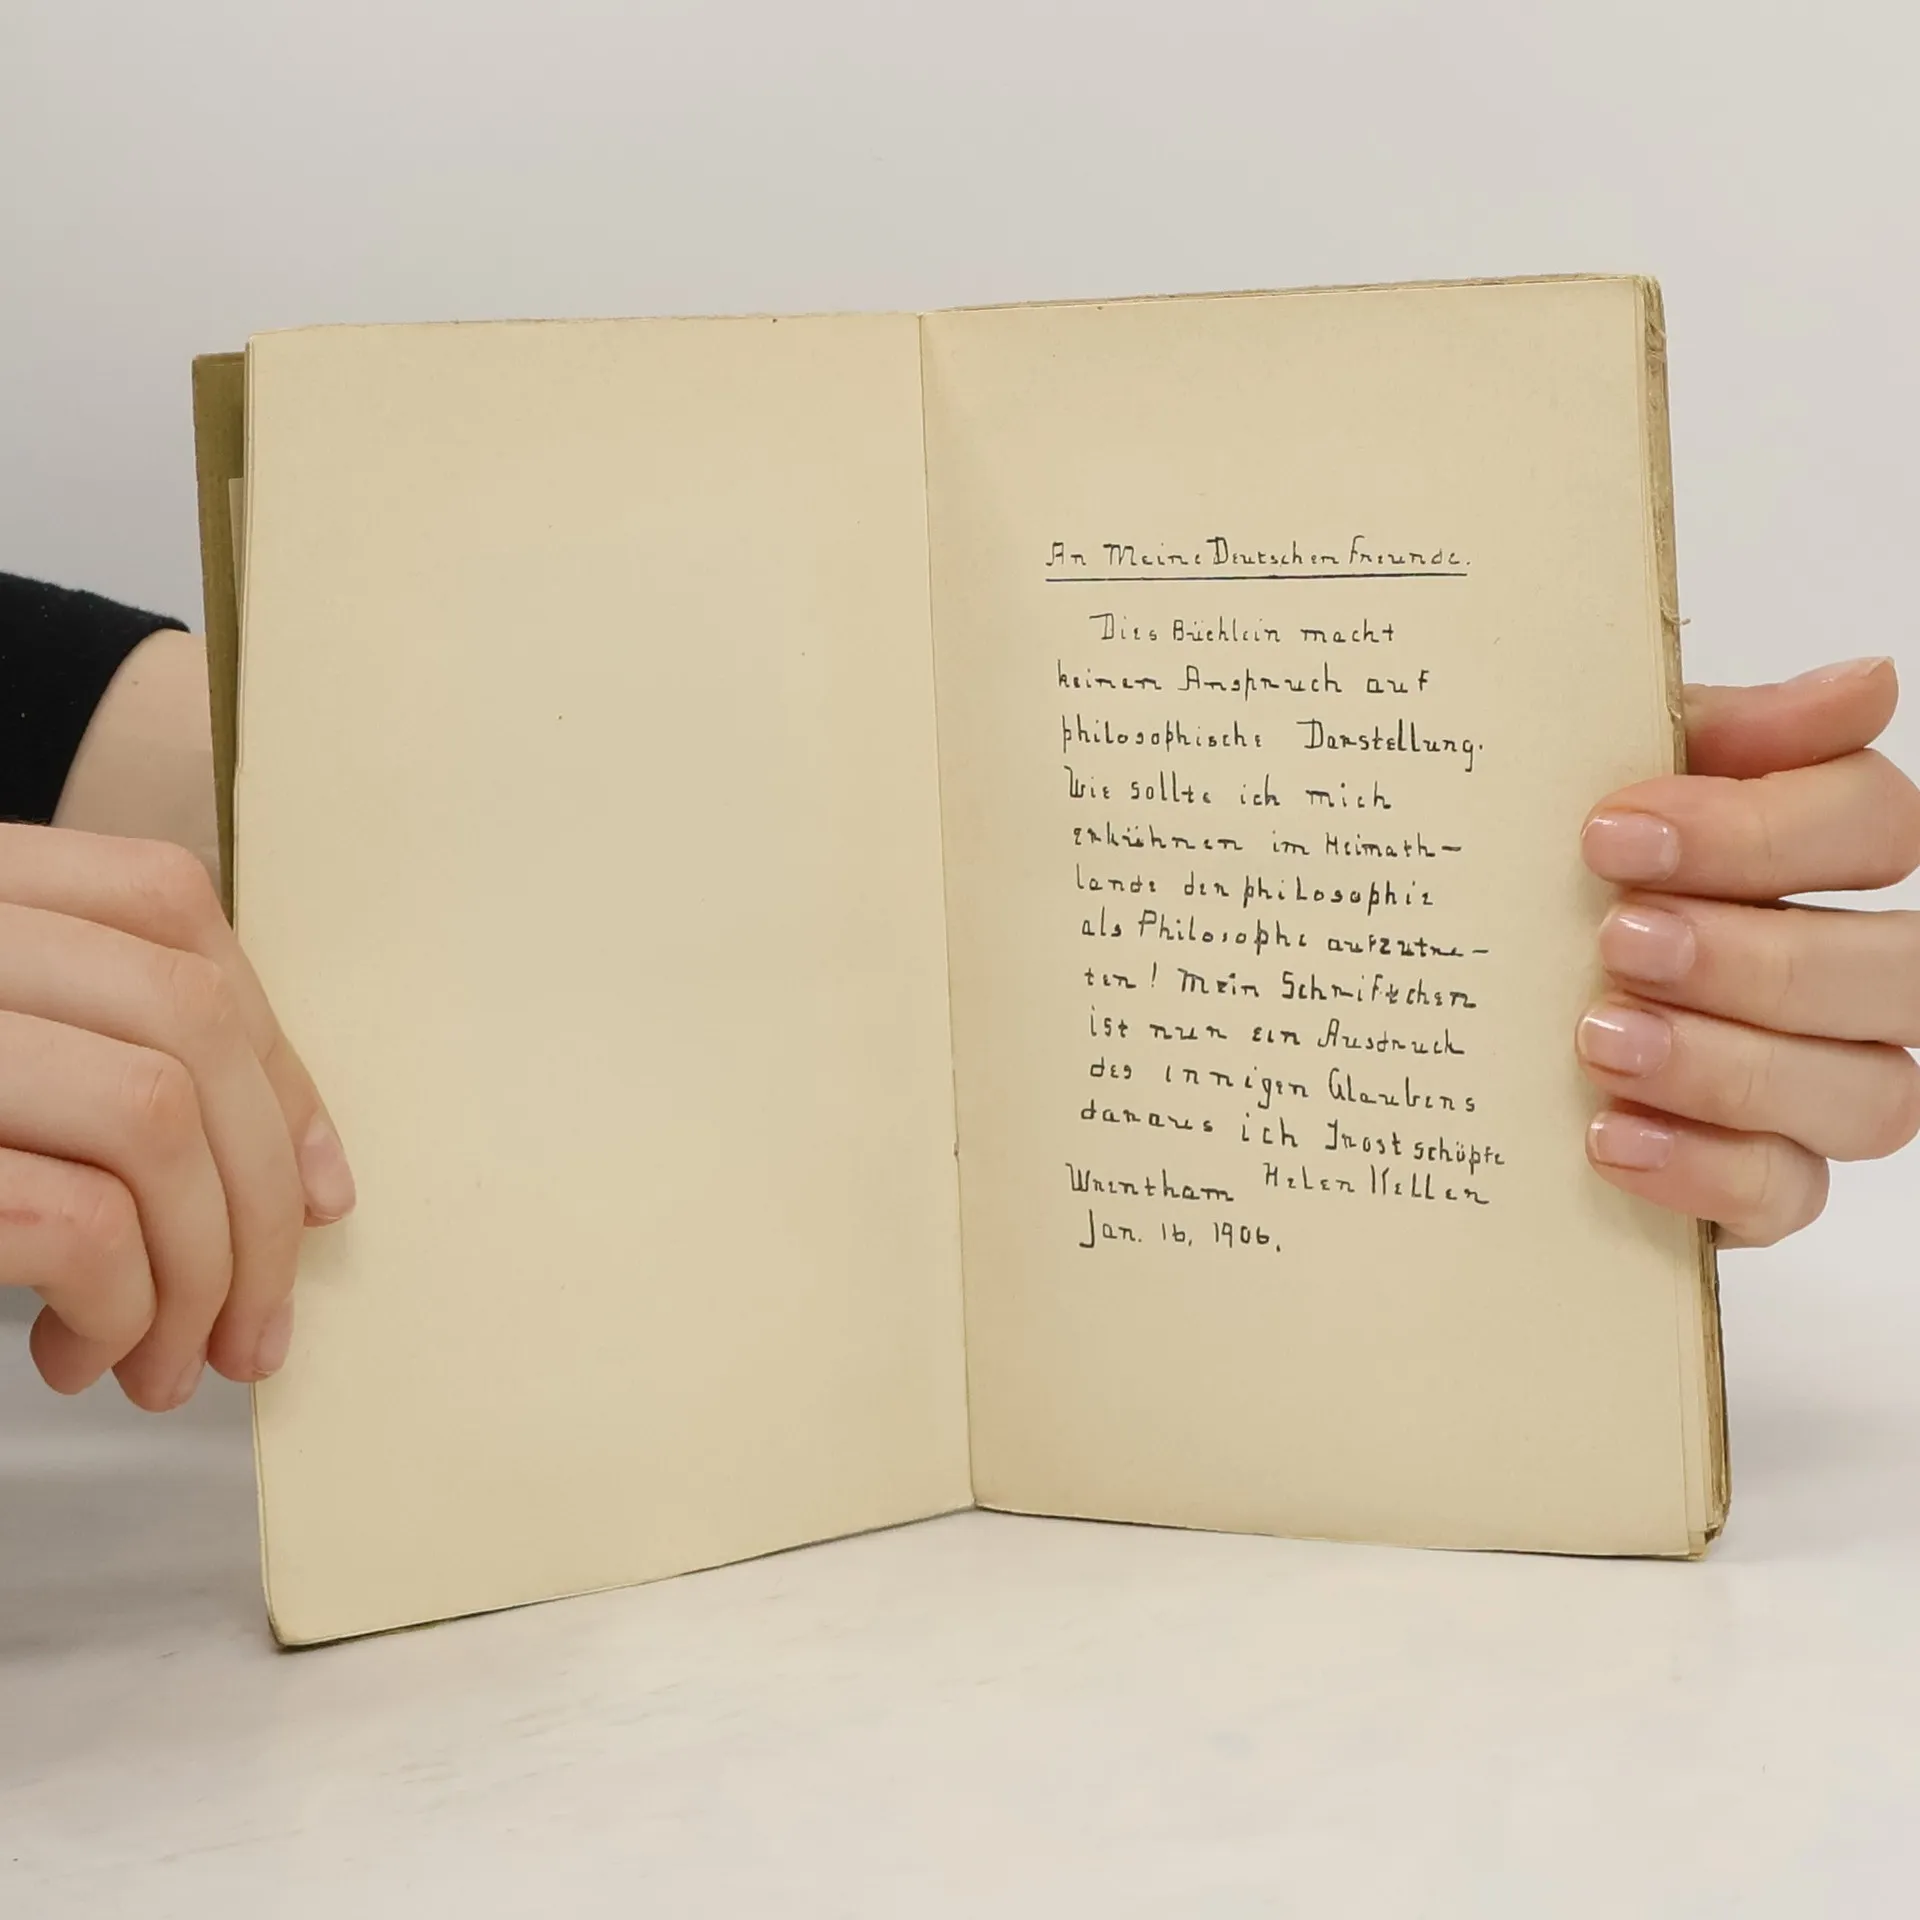 An Meine Deutschen Freunde.
Dies Büchlein macht
keinen Anspruch auf
philosophische Darstellung.
Wie sollte ich mich
erkühnen im Heimath-
lande der Philosophie
als Philosophe aufzutre-
ten! Mein Schriftchen
ist nur ein Ausdruck
des innigen Glaubens
daraus ich Trost schöpfe
Helen Keller
Wrentham
Jan. 16, 1906.